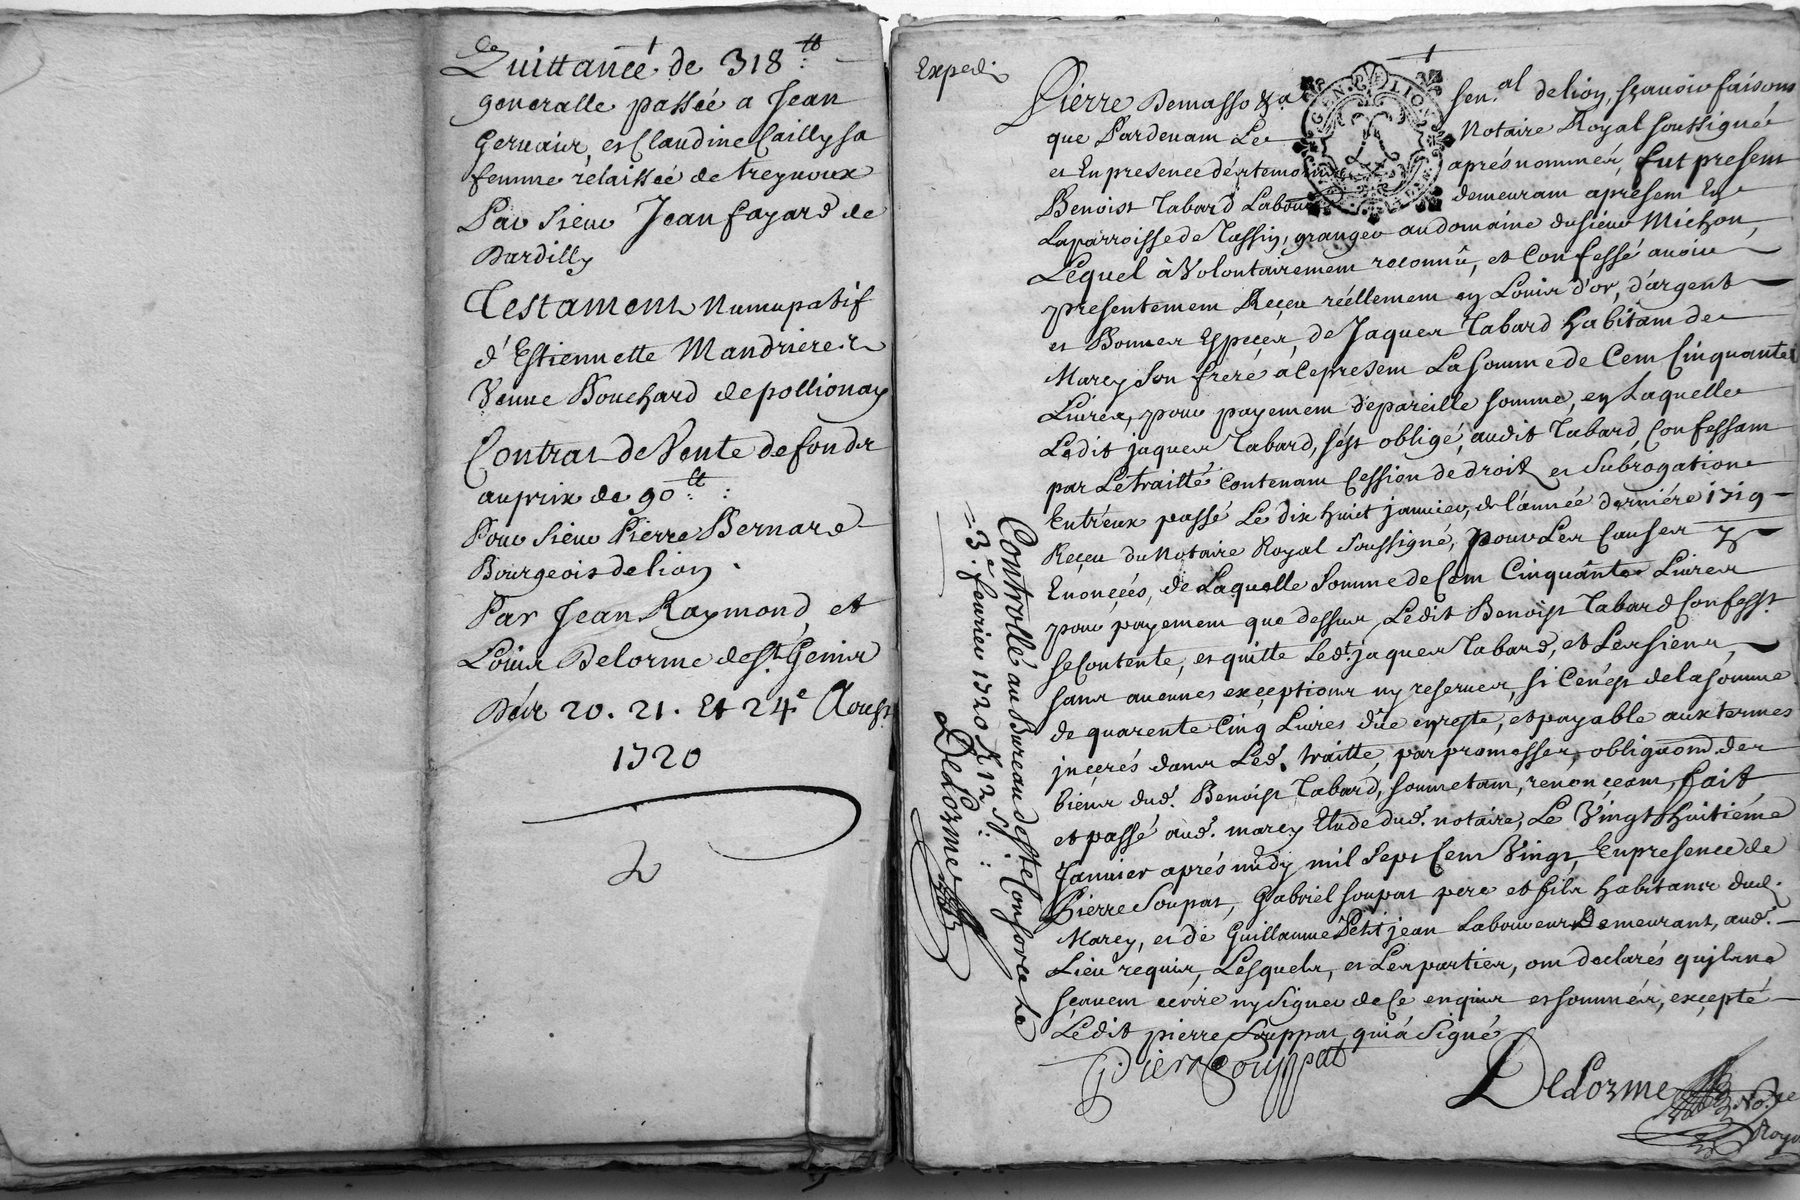 Quittance de 318 ₶
generalle passée a Jean
Gervaix, et Claudine Cailly sa
femme rélaissée de treynoux
Par Sieur Jean fayard de
Dardilly
Testament Nuncupatif
d'Estiennette Mandrieres
Veuve Bouchard de pollionay
Contrat de Vente de fonds
au prix de 90 ₶
Pour Sieur Pierre Bernard
Bourgeois de lion
Par Jean Raymond, et
Louis Delorme de St. Genis
Des 20. 21. Et 24e Aoust
1720
Exped.
GEN. D. LION
Pierre Demasso &a sen.al de lion, sçavoir faisons
que Pardevant Le Notaire Royal soussigné
et En presence des temoins aprés nommés, fut present
Benoist Tabard Laboureur demeurant apresent En
La parroisse de Tassin, granger au domaine du sieur Michon,
Lequel à Volontairement reconnû, et Confessé avoir
presentement Reçeu réellement en Louis d'or, d'argent
et Bonnes Especes, de Jaques Tabard habitant de
Marcy son frere a ce present La somme de Cent Cinquante
Livres, pour payement de pareille somme, en Laquelle
Ledit jaques Tabard, s'est obligé, audit Tabard, Confessant
par Le traitté Contenant Cession de droits et Subrogation
Entr'eux passé Le dix huict janvier, de l'année derniére 1719
Reçeu du Notaire Royal Soussigné, pour Les Causes y
Enonçées, de Laquelle Somme de Cent Cinquante Livres
pour payement que dessus Ledit Benoist Tabard Confess.t
se Contente, et quitte Led.t jaques Tabard, et Les siens,
sans aucunes exçeptions ny reserves, si Ce n'est de la somme
de quarente Cinq Livres dûe en reste, et payable aux termes
inçerés dans Led. traitté, par promesses, obligaõn des
biens dud. Benoist Tabard, soumetant, renonçeant, fait
et passé aud. marcy Etude dud. notaire, Le Vingt huitiéme
Janvier aprés midy mil Sept Cent Vingt, En presence de
Pierre Soupat, Gabriel soupat pere et fils habitants dud.
Marcy, et de Guillaume Petit jean Laboureur Demeurant, aud.
Lieu requis, Lesquels, et Les parties, ont declarés qu'ils ne
sçavent ecrire ny signer de Ce enquis et sommés, exçepté
Ledit pierre Souppat qui à signé
Pierre Souppat
Delorme No.re Royal
Controllé au Bureau de ste Consorce Le
3.e fevrier 1720 R 12 s.
Delorme